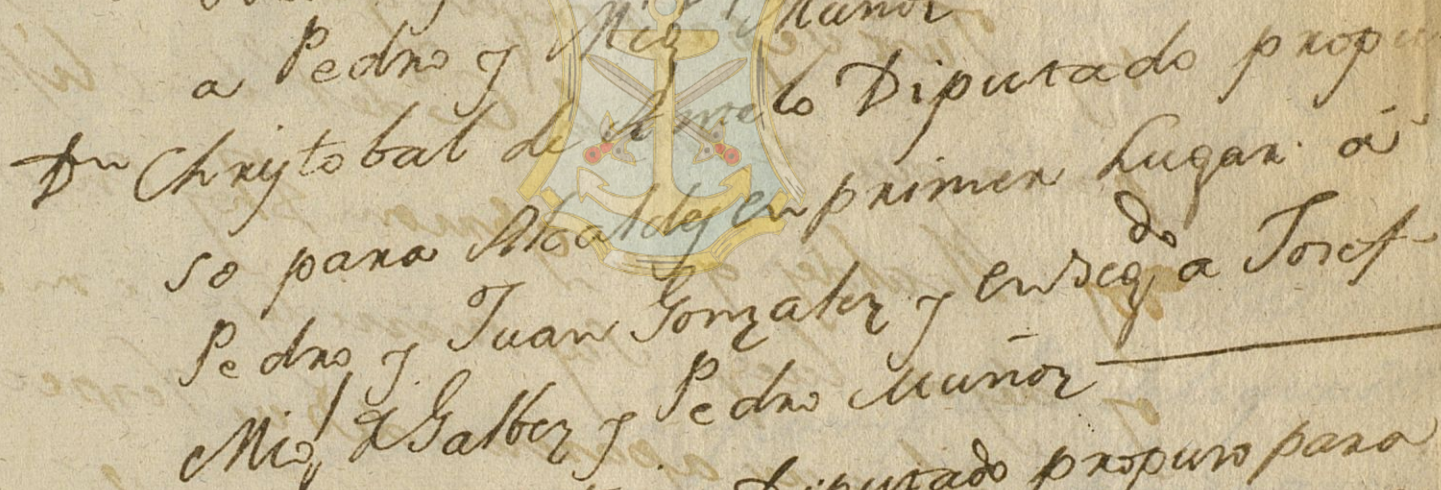 a Pedro y Mig.l Muñoz
Dn Chrystobal de Diputado propu
so para Alcaldes en primer Lugar á
Pedro y Juan Gonzalez y en seg.do a Josef
Mig.l de Galbez y Pedro Muñoz
Diputado propuso para